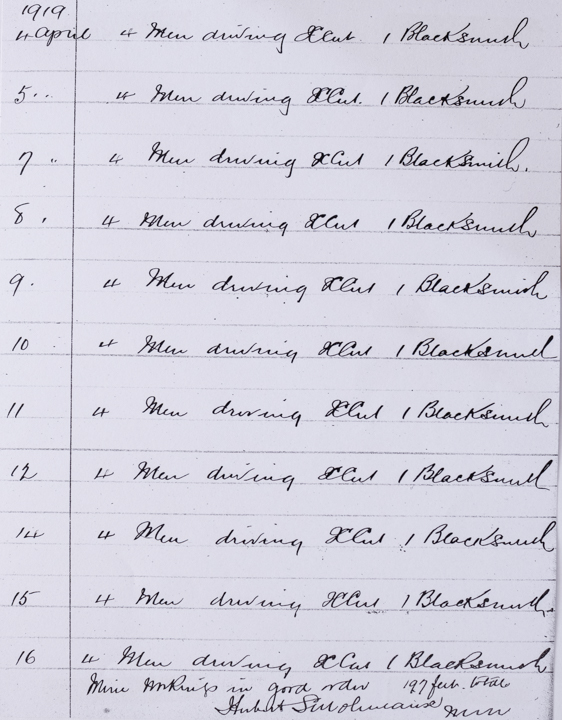 1919
4 april 4 Men driving XCut. 1 Blacksmith
5 .. 4 Men driving XCut. 1 Blacksmith
7 .. 4 Men driving XCut 1 Blacksmith.
8 . 4 Men driving XCut 1 Blacksmith
9. 4 Men driving XCut 1 Blacksmith
10 4 Men driving XCut 1 Blacksmith
11 4 Men driving XCut 1 Blacksmith
12 4 Men driving XCut 1 Blacksmith
14 4 Men driving XCut 1 Blacksmith
15 4 Men driving XCut 1 Blacksmith.
16 4 Men driving XCut 1 Blacksmith
Mine Workings in good order 197 feet. total
Hubert